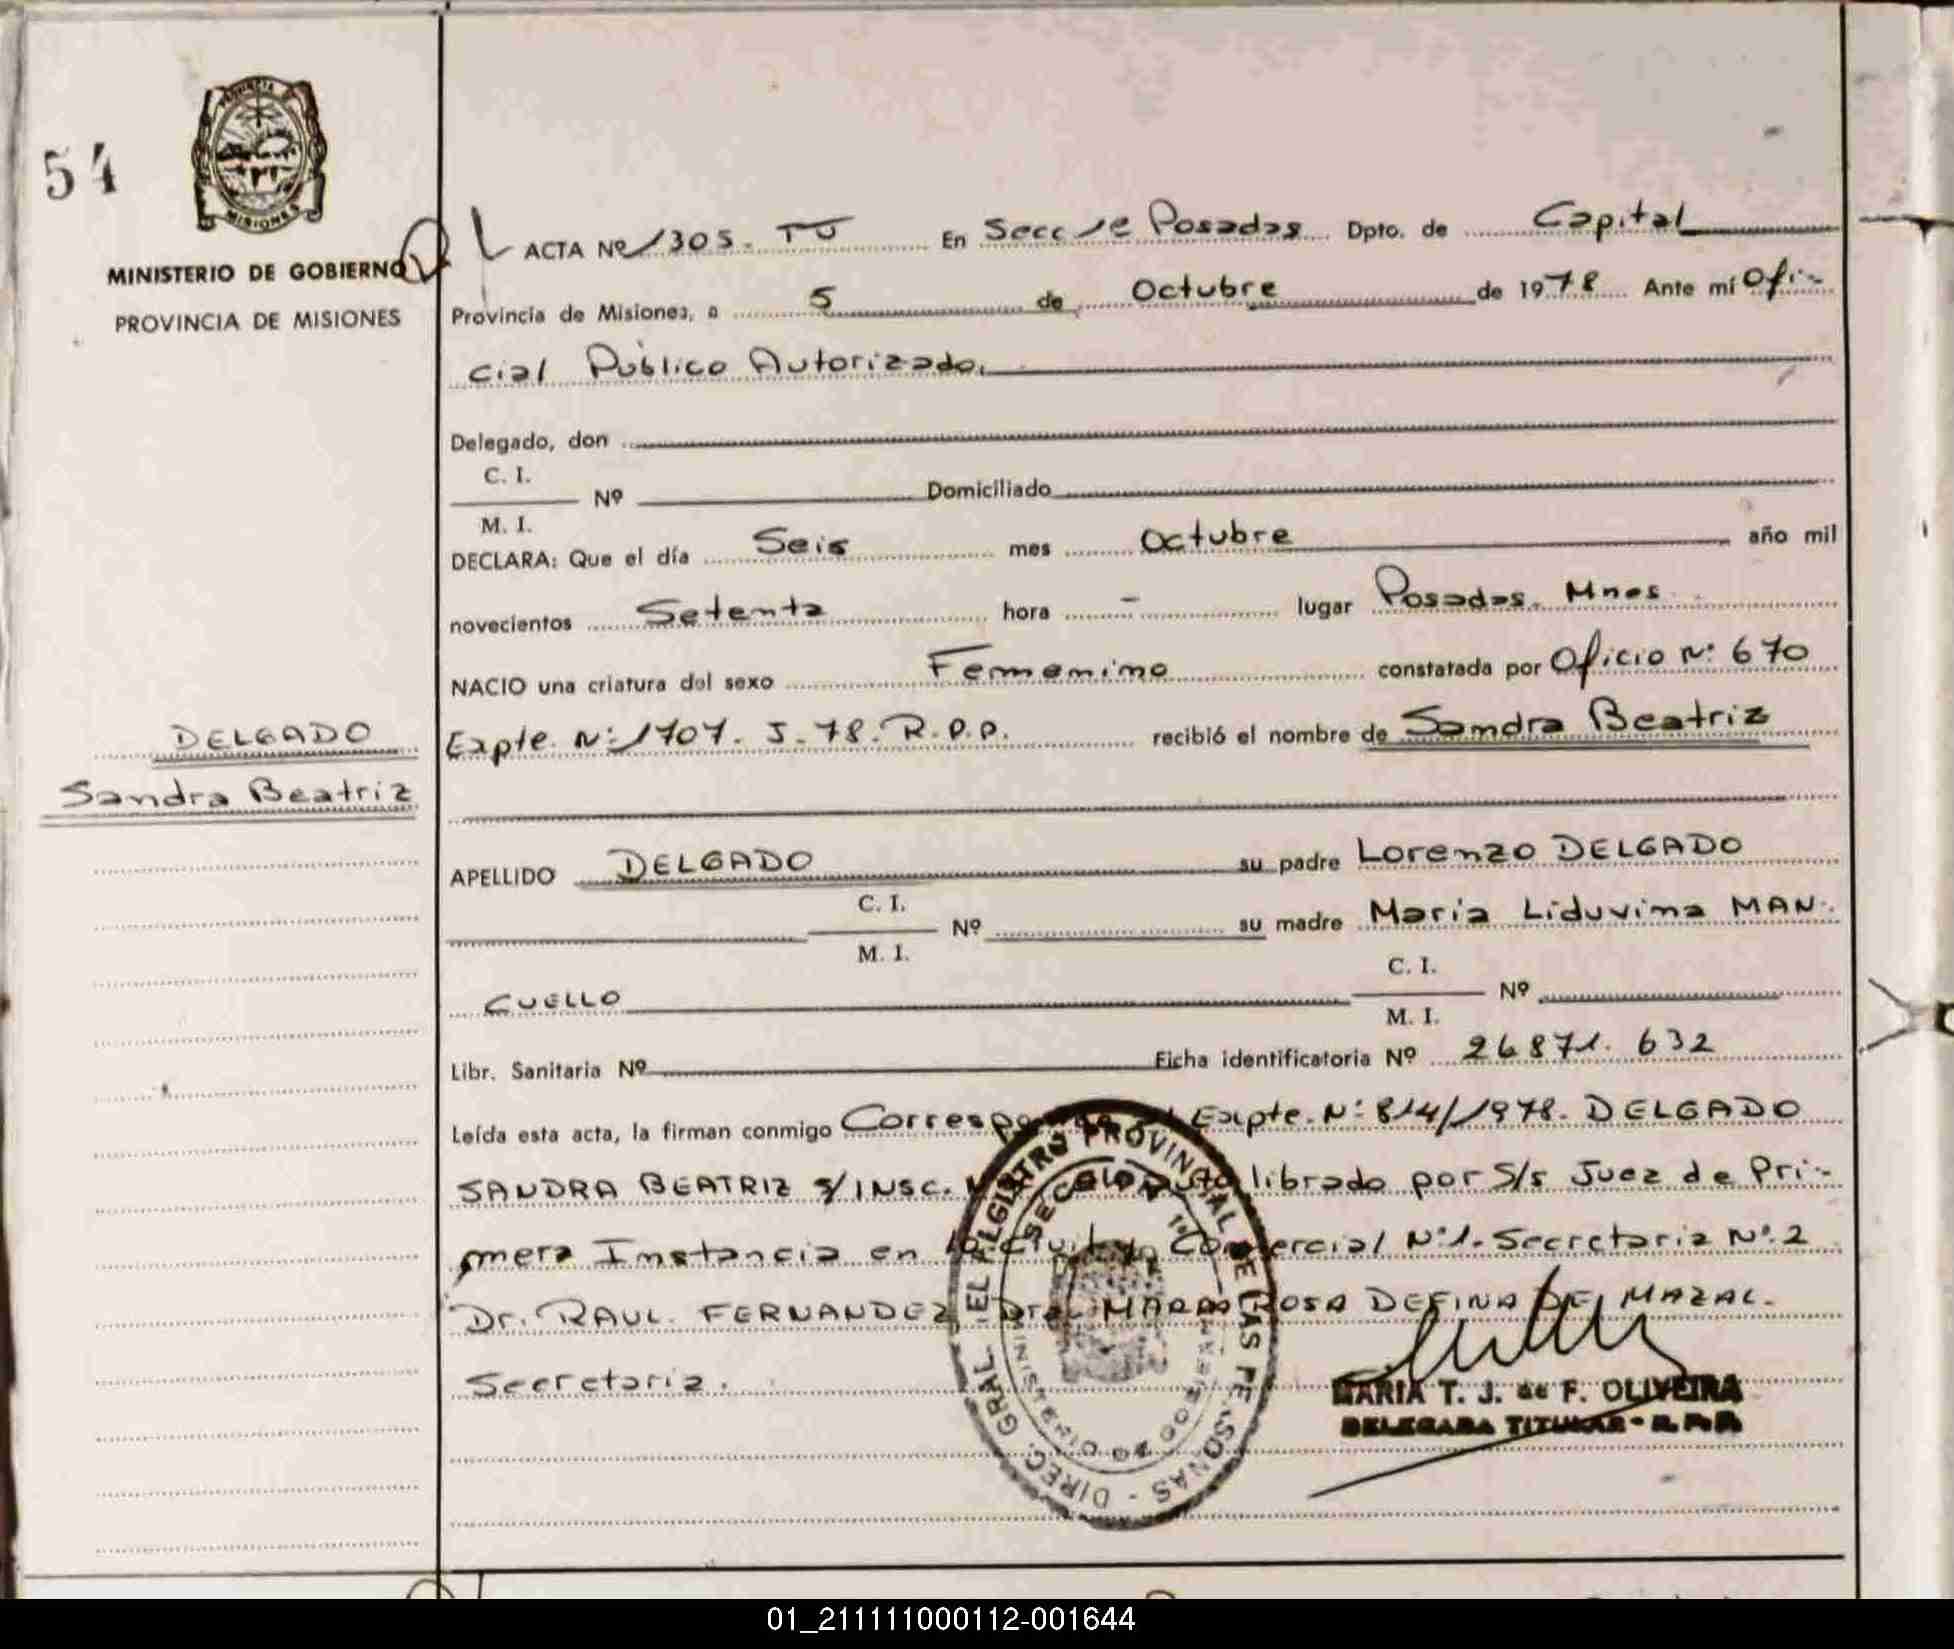 54
PROVINCIA DE
MISIONES
MINISTERIO DE GOBIERNO
PROVINCIA DE MISIONES
DELGADO
Sandra Beatriz
ACTA Nº 1305. TU En Secc 1ª Posadas Dpto. de Capital
Provincia de Misiones, a 5 de Octubre de 1978 Ante mí Ofi-
cial Público Autorizado.
Delegado, don
C. I.
Nº Domiciliado
M. I.
DECLARA: Que el día Seis mes Octubre año mil
novecientos Setenta hora - lugar Posadas. Mnes
NACIO una criatura del sexo Femenino constatada por Oficio Nº 670
Expte. Nº 1707. J-78. R.P.P. recibió el nombre de Sandra Beatriz
APELLIDO DELGADO su padre Lorenzo DELGADO
C. I.
Nº su madre Maria Liduvina MAN-
M. I.
C. I.
CUELLO Nº
M. I.
Libr. Sanitaria Nº Ficha identificatoria Nº 26871.632
Leída esta acta, la firman conmigo Expte. Nº 814/1978. DELGADO
SANDRA BEATRIZ s/INSC. librado por S/s Juez de Pri-
mera Instancia en lo Civil y Comercial Nº 1. Secretaria Nº 2
Dr. RAUL FERNANDEZ, Dra. MARIA ROSA DEFINA DE MAZAL.
Secretaria.
DIREC. GRAL. DEL REGISTRO PROVINCIAL DE LAS PERSONAS
MARIA T. J. de F. OLIVEIRA
DELEGADA TITULAR - R.P.P.
01_211111000112-001644